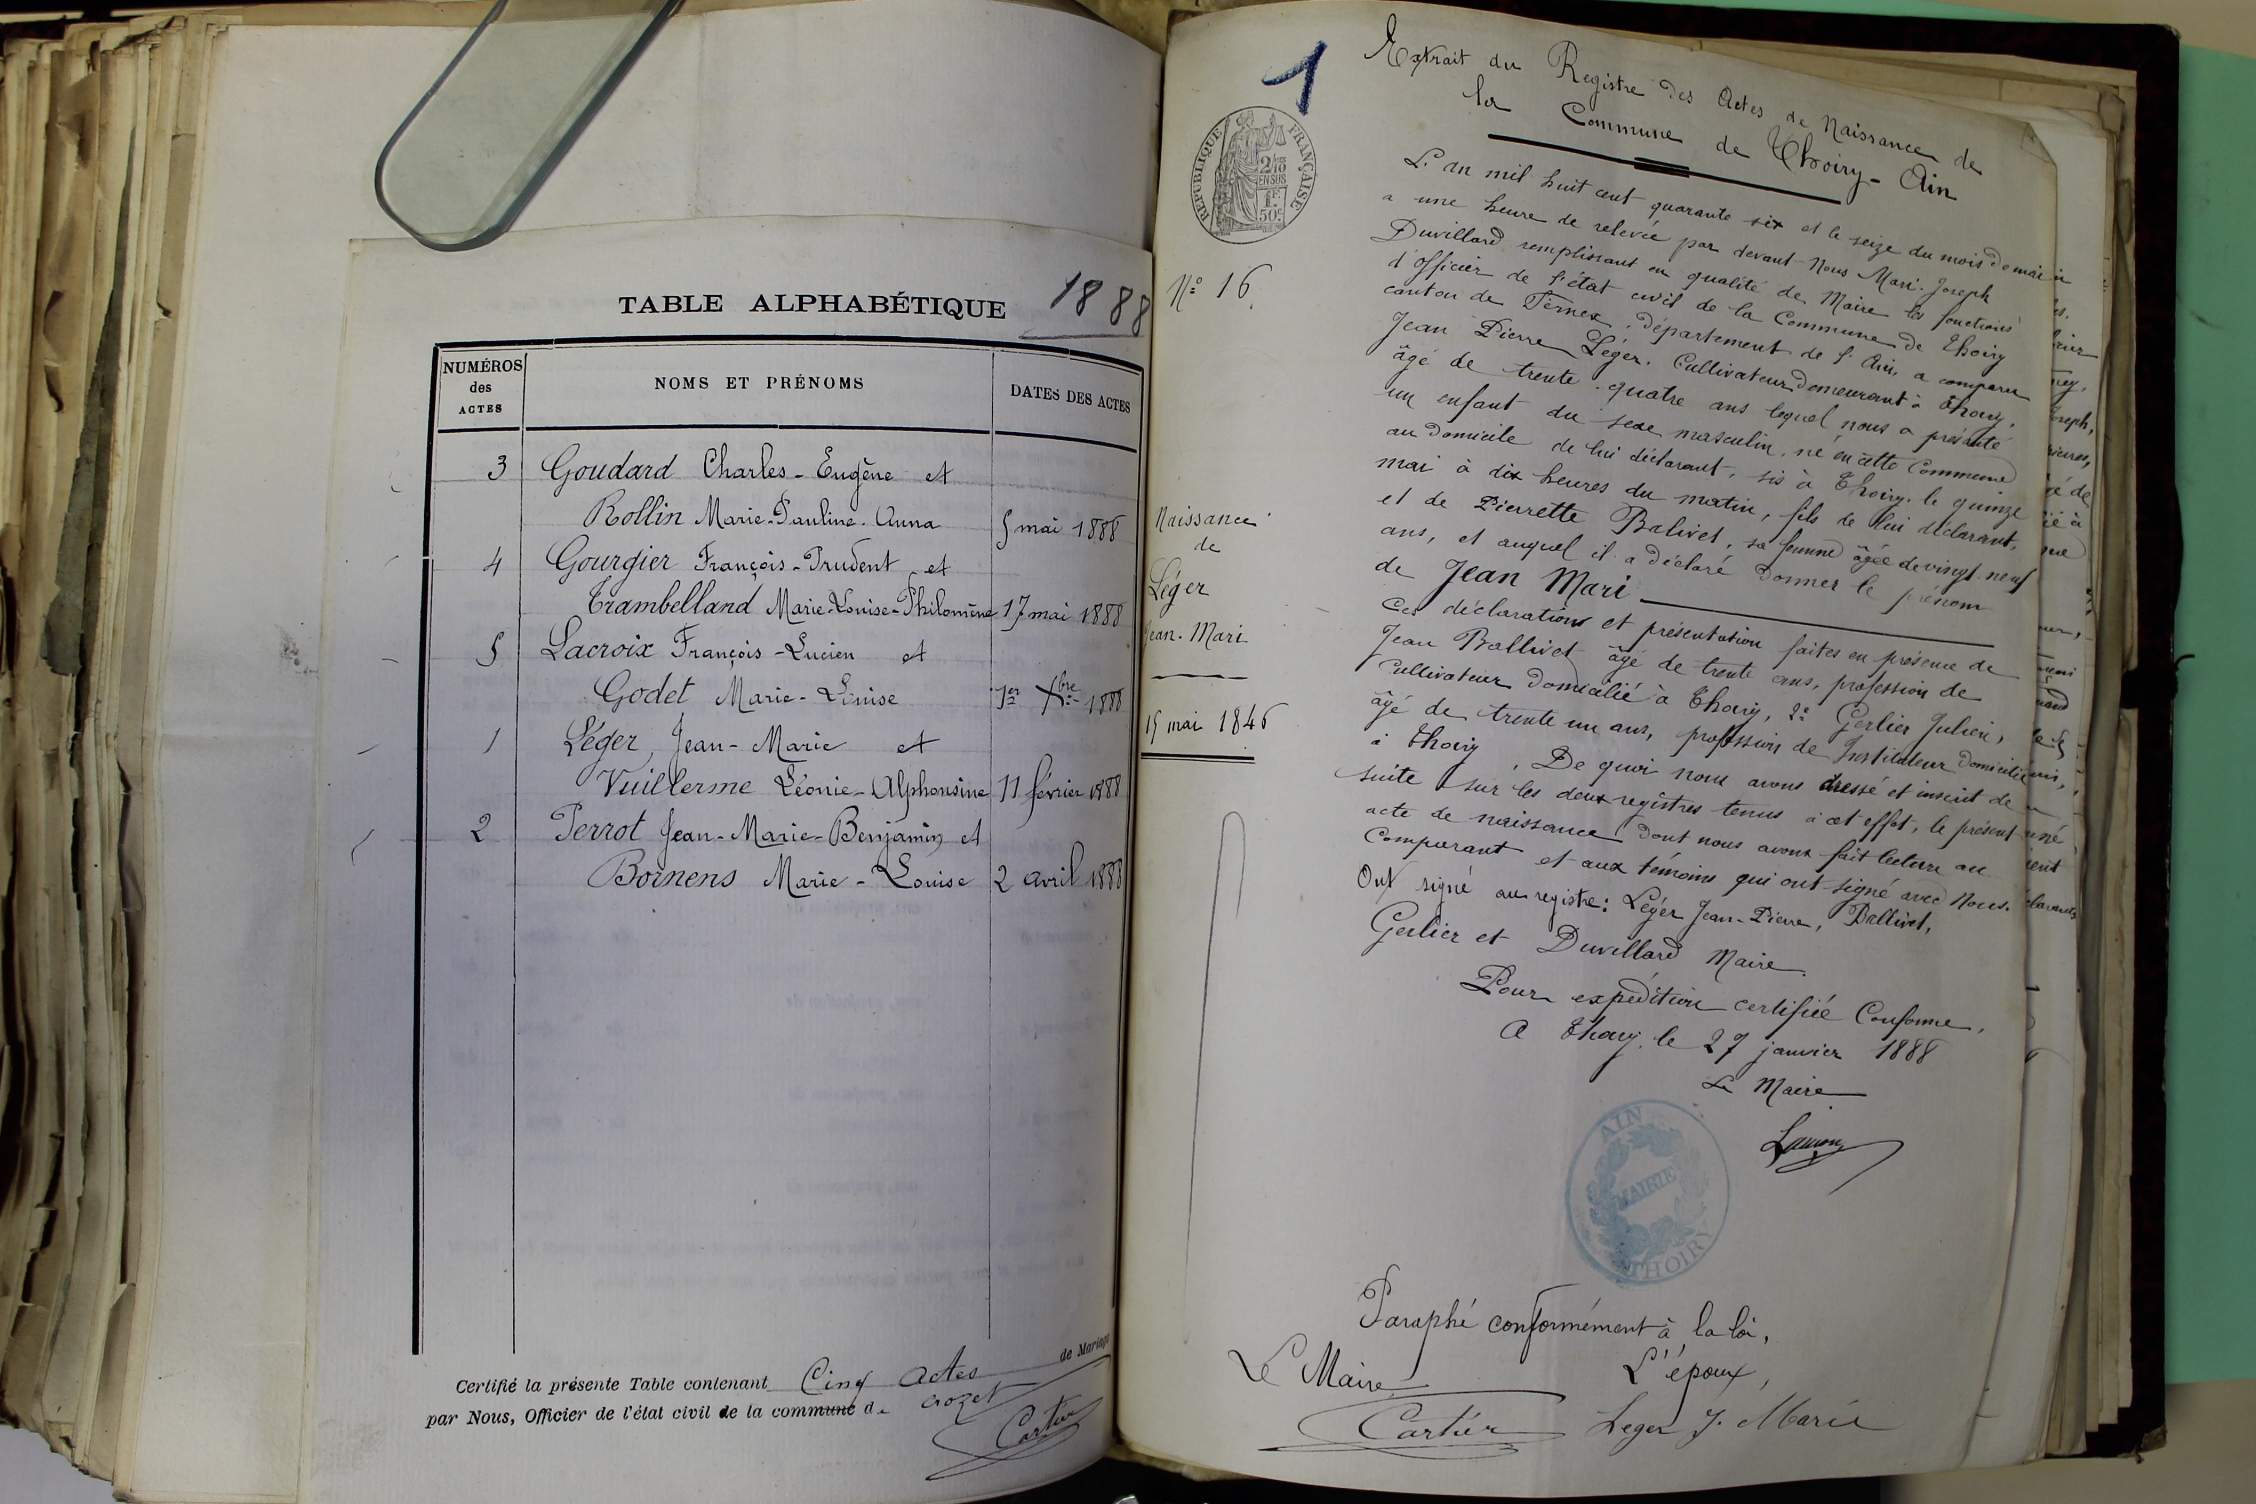 TABLE ALPHABÉTIQUE 1888
NUMÉROS des ACTES
NOMS ET PRÉNOMS
DATES DES ACTES
3 Goudard Charles-Eugène et
Rollin Marie-Pauline-Anna 5 mai 1888
4 Gourgier François-Prudent et
Trambelland Marie-Louise-Philomène 17 mai 1888
5 Lacroix François-Lucien et
Godet Marie-Louise 1er Xbre 1888
1 Léger, Jean-Marie et
Vuillerme Léonie-Alphonsine 11 février 1888
2 Perrot Jean-Marie-Benjamin et
Bornens Marie-Louise 2 avril 1888
Certifié la présente Table contenant Cinq actes de Mariage
par Nous, Officier de l'état civil de la commune de Crozet
Cartier
1
RÉPUBLIQUE FRANÇAISE
2/10 EN SUS
1F. 50c.
N° 16.
Naissance
de
Léger
Jean-Mari
15 mai 1846
Extrait du Registre des Actes de Naissance de
la Commune de Thoiry-Ain
L'an mil huit cent quarante six et le seize du mois de mai
a une heure de relevée par devant Nous Mari-Joseph
Duvillard remplissant en qualité de Maire les fonctions
d'officier de l'état civil de la Commune de Thoiry
canton de Fernex, département de l'Ain, a comparu
Jean Pierre Léger, Cultivateur demeurant à Thoiry,
âgé de trente-quatre ans lequel nous a présenté
un enfant du sexe masculin, né en cette Commune
au domicile de lui déclarant, sis à Thoiry, le quinze
mai à dix heures du matin, fils de lui déclarant,
et de Pierrette Balivet, sa femme âgée de vingt-neuf
ans, et auquel il a déclaré donner le prénom
de Jean Mari
Ces déclarations et présentation faites en présence de
Jean Ballivet âgé de trente ans, profession de
Cultivateur domicilié à Thoiry, 2° Gerlier Julien,
âgé de trente un ans, profession de Instituteur domicilié
à Thoiry. De quoi nous avons dressé et inscrit de
suite sur les deux registres tenus à cet effet, le présent
acte de naissance dont nous avons fait lecture au
Comparant et aux témoins qui ont signé avec Nous.
Ont signé au registre: Léger Jean-Pierre, Ballivet,
Gerlier et Duvillard Maire.
Pour expédition certifiée Conforme,
A Thoiry, le 27 janvier 1888
Le Maire
AIN
MAIRIE
THOIRY
Paraphé conformément à la loi,
Le Maire L'époux,
Cartier Leger J. Marie